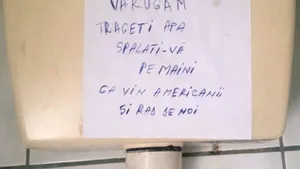 VĂ RUGĂM
TRAGEȚI APA
SPALATI-VĂ
PE MAINI
CA VIN AMERICANII
ȘI RÂD DE NOI